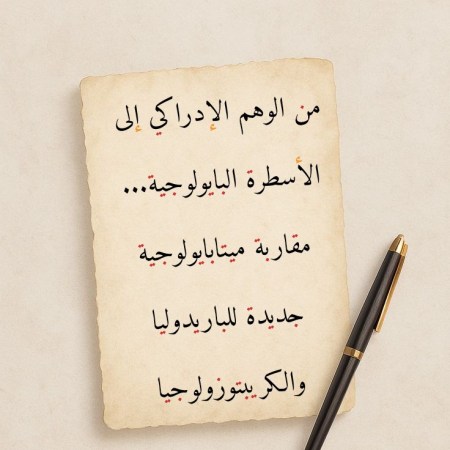 من الوهم الإدراكي إلى
الأسطرة البايولوجية...
مقاربة ميتابايولوجية
جديدة للباريدوليا
والكريبتوزولوجيا